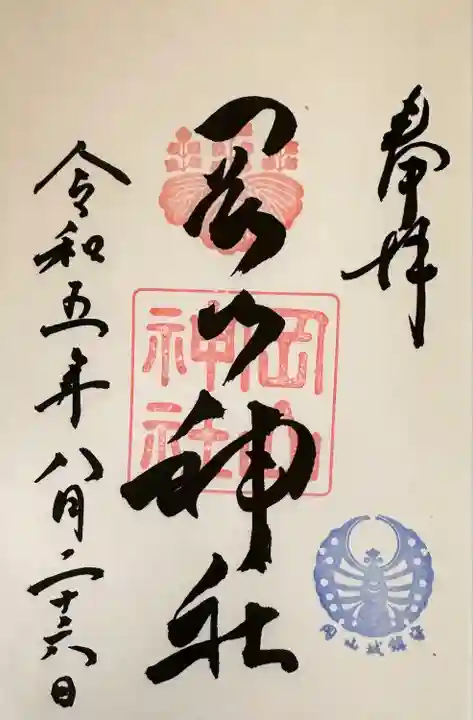 奉拝
岡山神社
岡山
神社
令和五年八月二十六日
岡山城鎮守